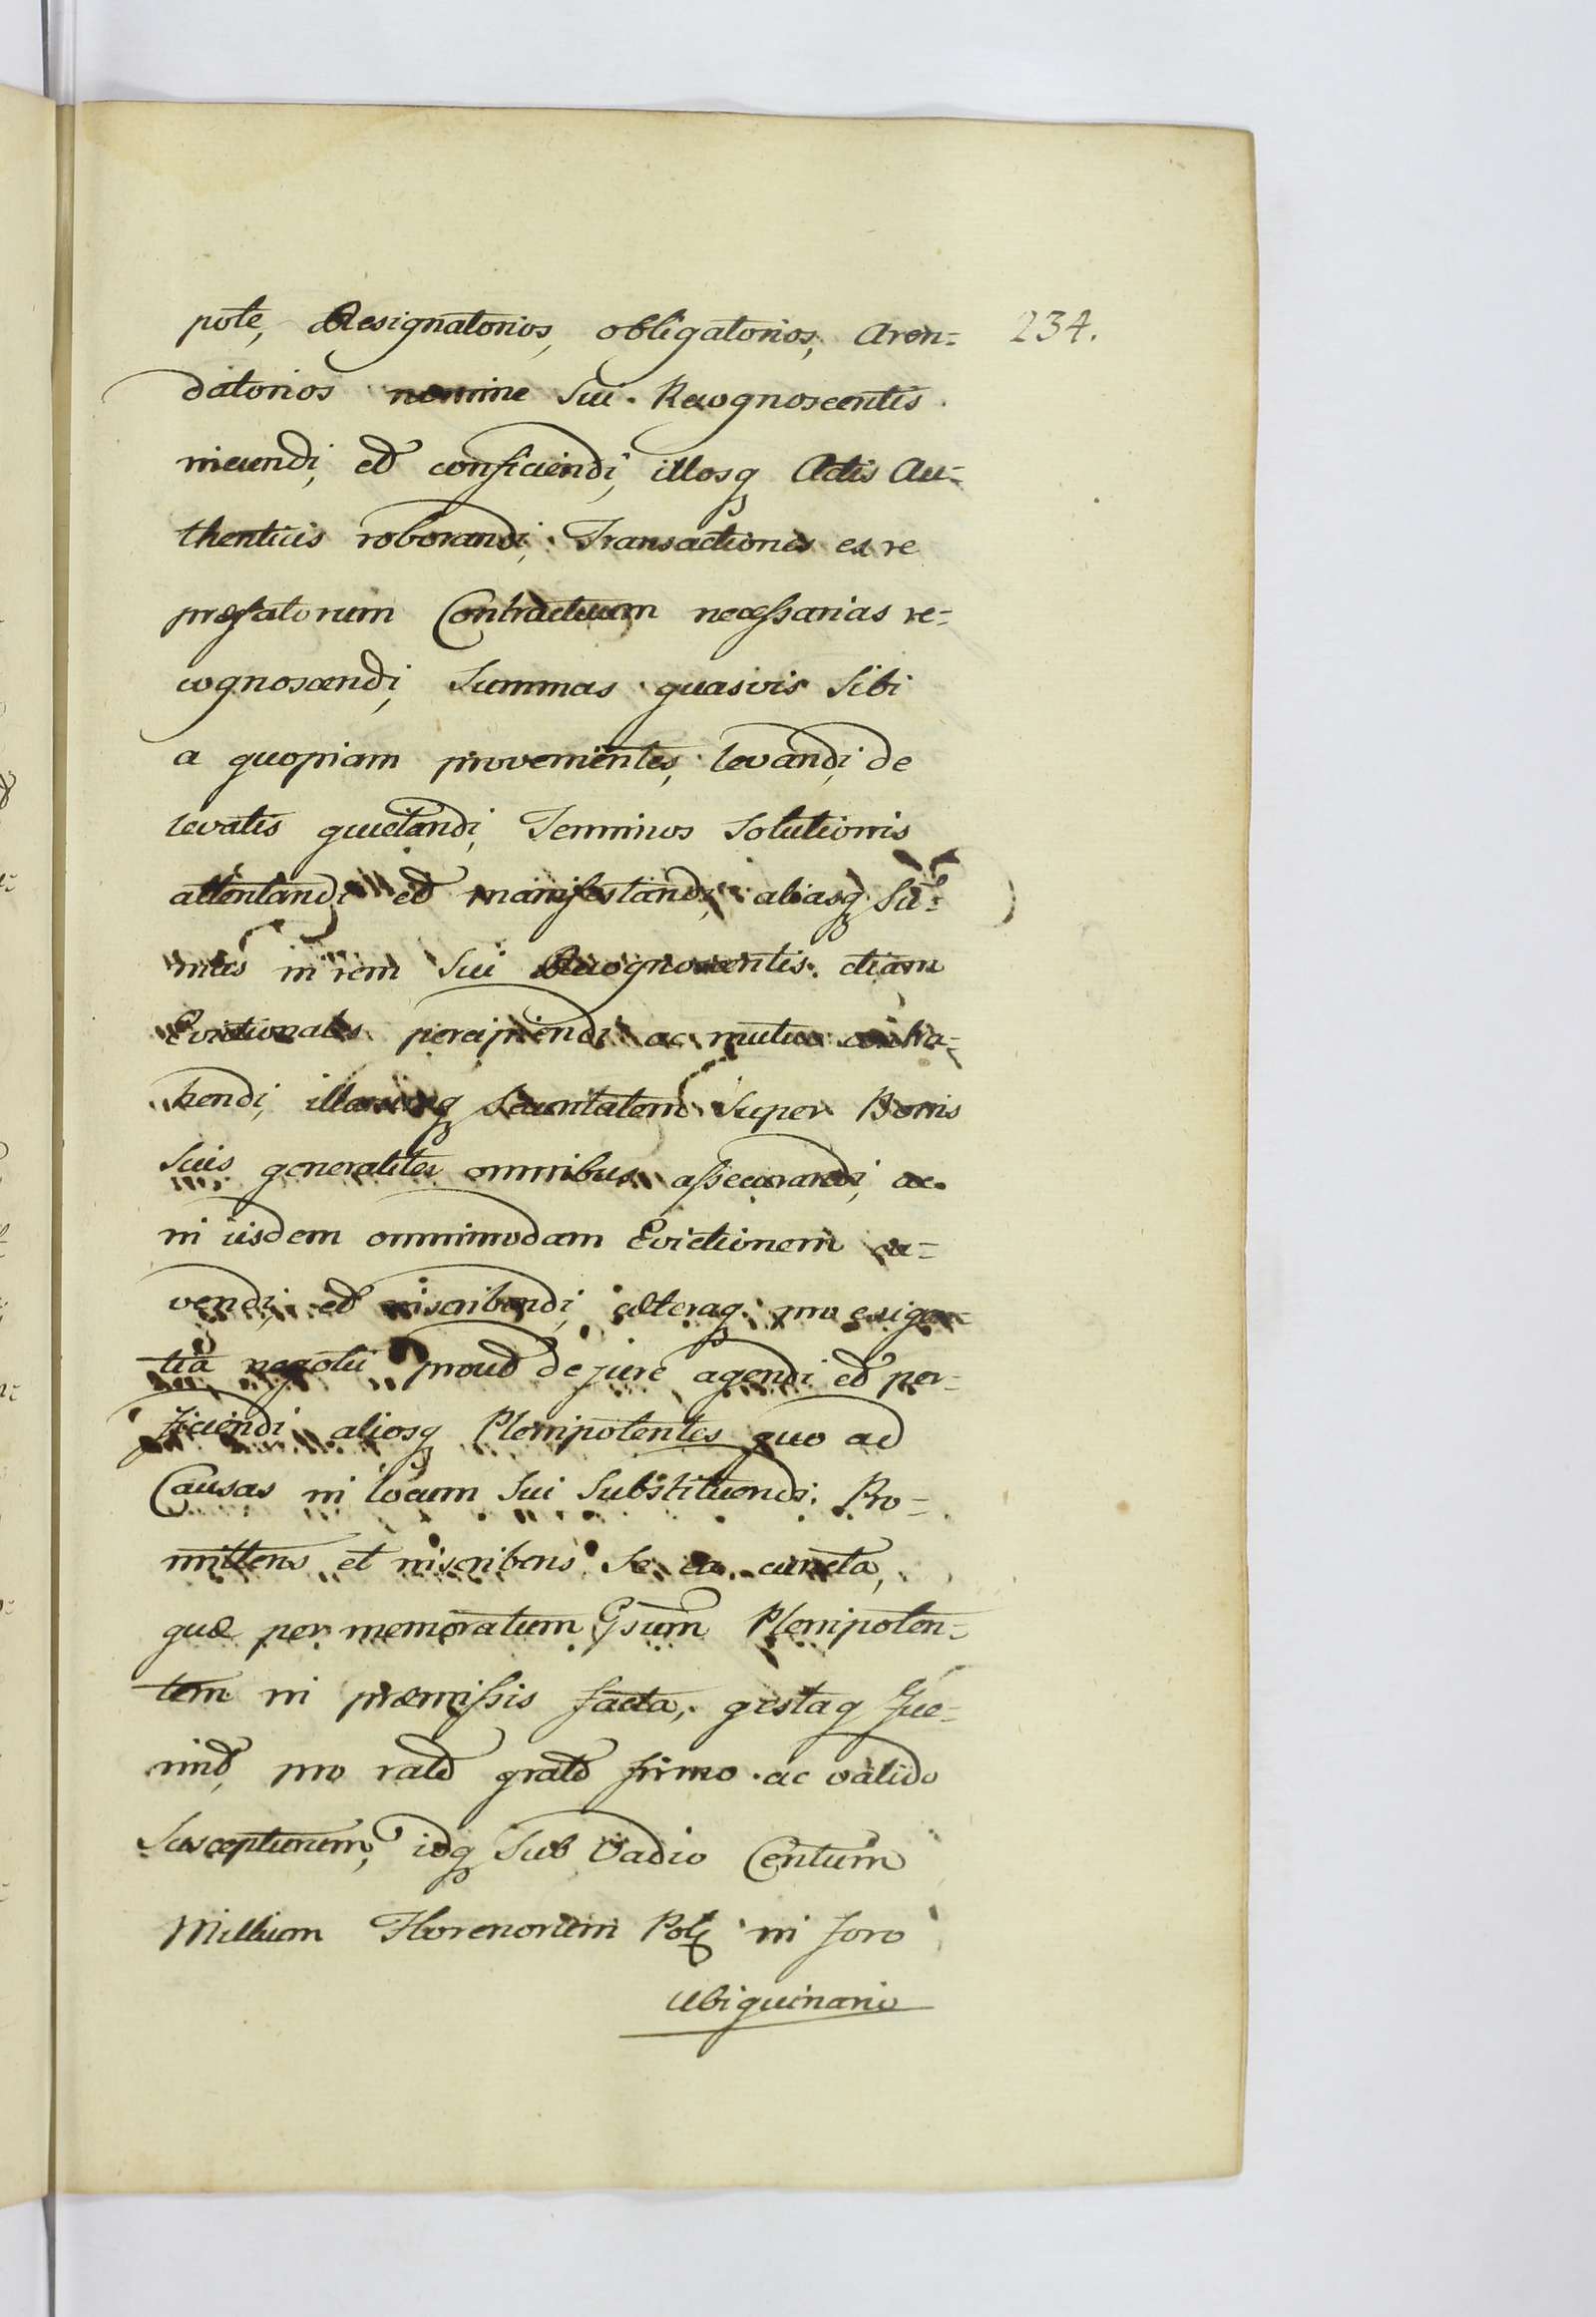 pote, Resignatorios, obligatorios, Aren= 234.
datorios nomine Sui Recognoscentis
ineundi, et conficiendi, illosq Actis Au=
thenticis roborandi, Transactiones ex re
præfatorum Contractuum necessarias re=
cognoscendi, Summas quasvis Sibi
a quopiam provenientes, levandi, de
levatis quietandi, Terminos Solutionis
attentandi et manifestandi, aliasq Su=
mas in rem Sui Recognoscentis etiam
Evictionales percipiendi ac mutuo contra=
hendi, illarumq Securitatem Super Bonis
Suis generaliter omnibus assecurandi, ac
in iisdem omnimodam Evictionem ca=
vendi, et inscribendi, cæteraq pro exigen=
tia negotii prout de jure agendi et per=
ficiendi aliosq Plenipotentes quo ad
Causas in locum Sui Substituendi. Pro=
mittens et inscribens Se ea cuncta,
quæ per memoratum Gsum Plenipoten=
tem in præmissis facta, gestaq fue=
rint, pro rato grato firmo ac valido
Suscepturum, idq Sub Vadio Centum
Millium Florenorum Pol in foro
Ubiquinario